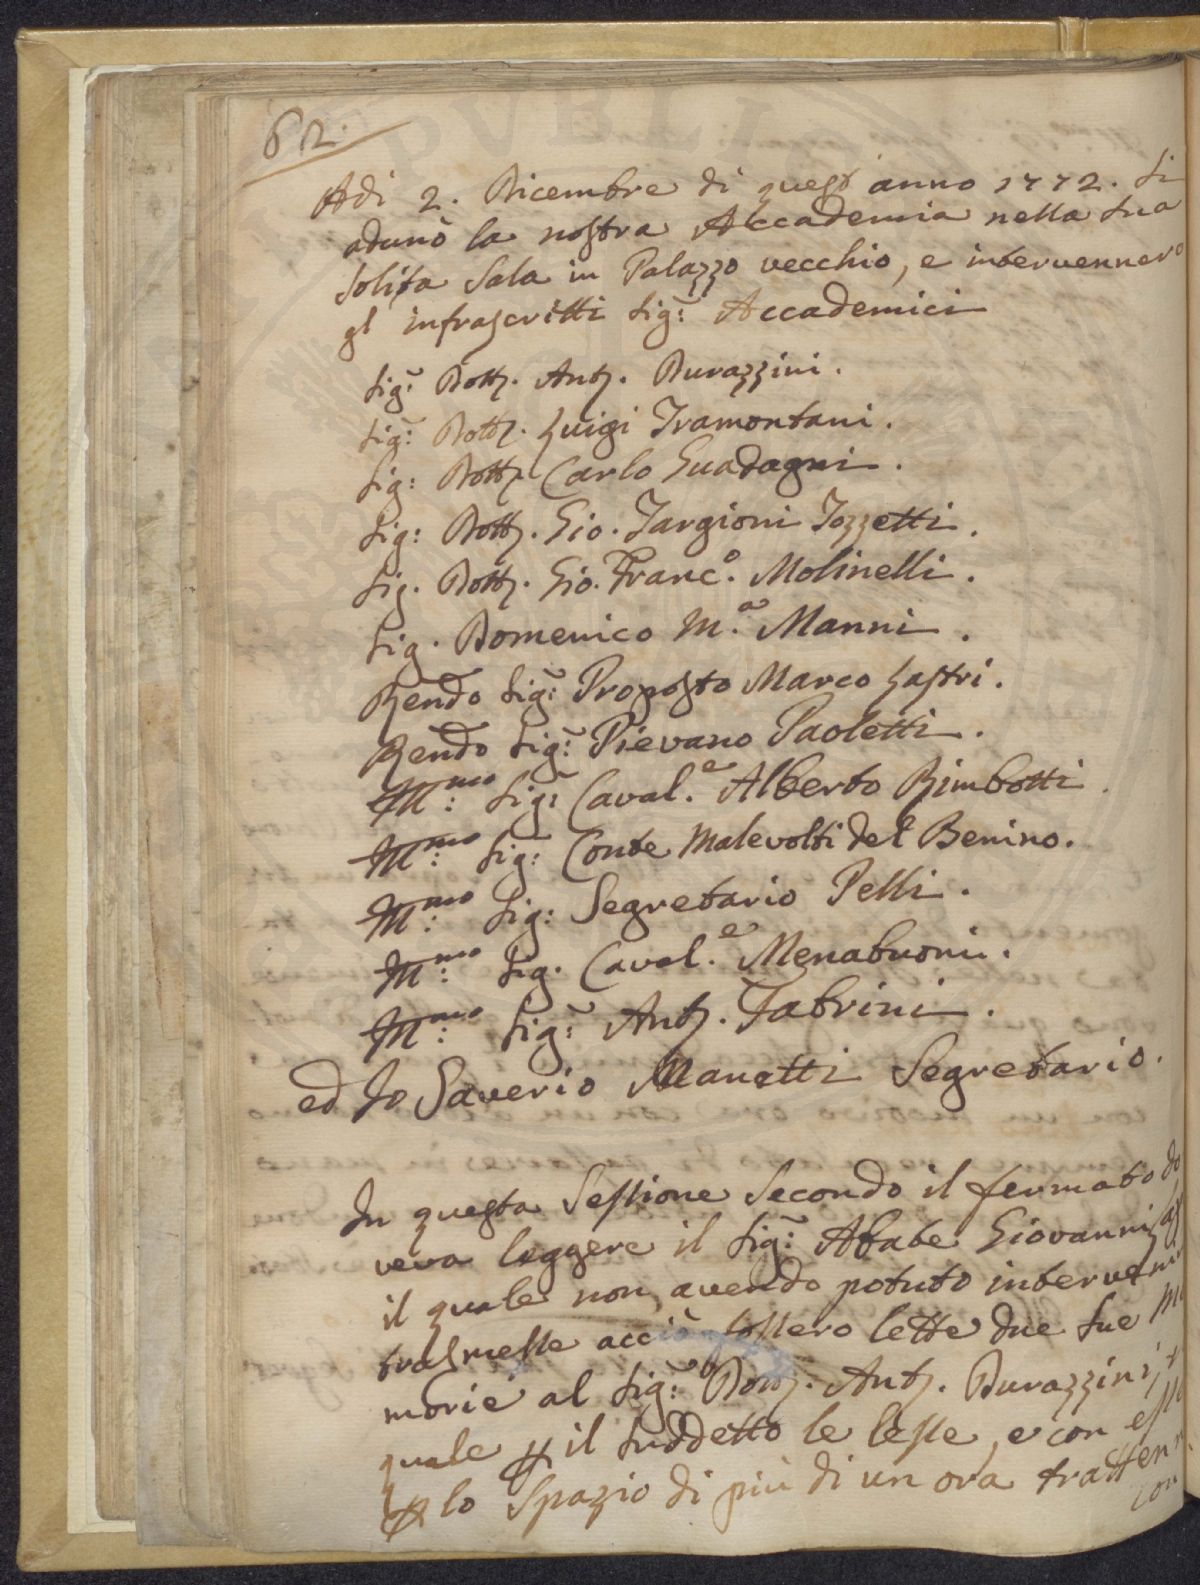 62.
Adi 2. Dicembre di quest' anno 1772. si
adunò la nostra Accademia nella sua
solita Sala in Palazzo vecchio, e intervennero
gl' infrascritti Sig.ri Accademici
Sig.r Dott. Ant. Durazzini.
Sig.r Dott. Luigi Tramontani.
Sig: Dott. Carlo Guadagni.
Sig: Dott. Gio. Targioni Tozzetti.
Sig. Dott. Gio. Franc.o Molinelli.
Sig. Domenico M.a Manni.
Rendo Sig.r Proposto Marco Lastri.
Rendo Sig.r Pievano Paoletti.
Ill.mo Sig.r Caval.e Alberto Rimbotti.
Ill.mo Sig: Conte Malevolti del Benino.
Ill.mo Sig: Segretario Pelli.
Ill.mo Sig. Caval.e Menabuoni.
Ill.mo Sig.r Ant. Fabrini.
ed Io Saverio Manetti Segretario.
In questa Sessione secondo il fermato do
veva leggere il Sig.r Abate Giovanni
il quale non avendo potuto interveni
trasmesse acciò fossero lette due sue Me
morie al Sig.r Dott. Ant. Durazzini, il
quale p il suddetto le lesse, e con esse
p lo spazio di più di un ora trattenn
PVBLI